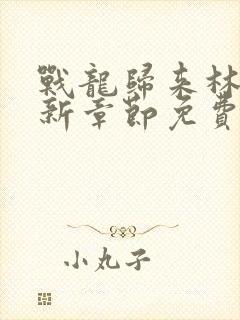 戰龍歸來林
新章節免費
小丸子